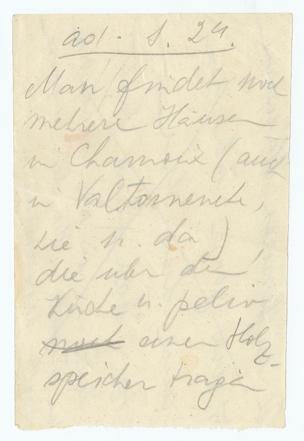 ad. S. 24.
Man findet noch
mehrere Häuser
in Chamoix (auch
in Valtornenche,
hie u. da),
die über der
Küche u. peliv
noch einen Holz-
speicher tragen